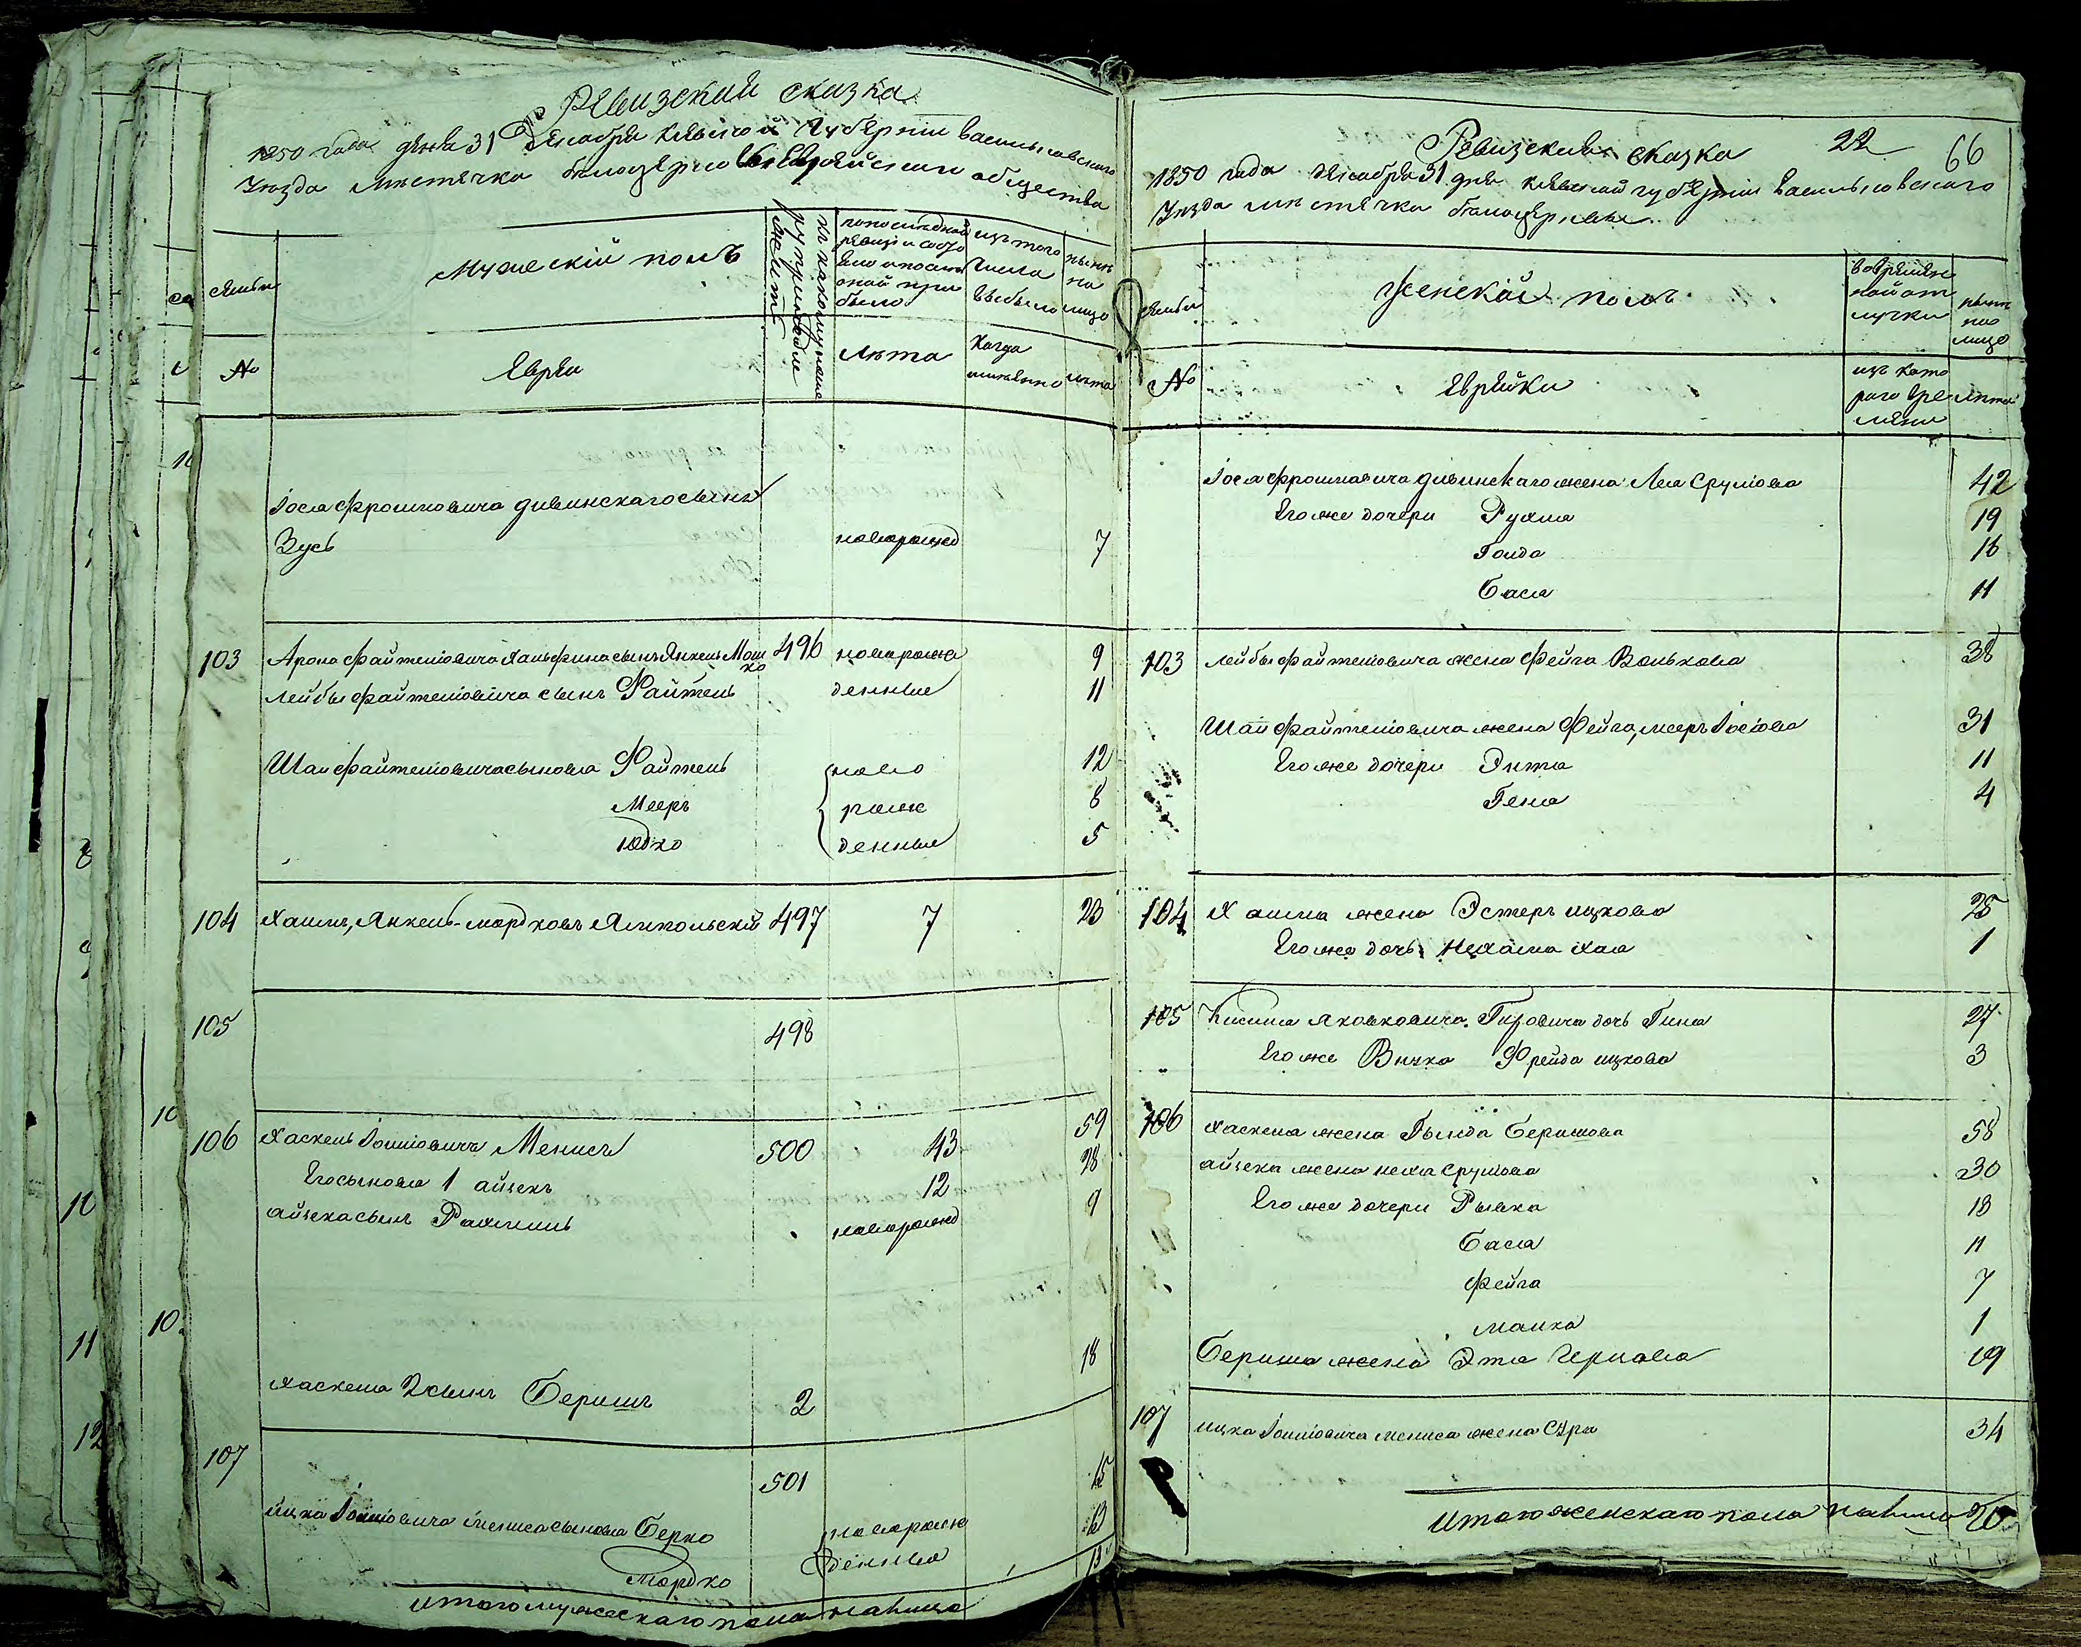 Ревизская сказка
1850 года дня 31 Декабря Киевской Губернии Васильковского
Уезда местечка Белоцеркви Еврейского общества
семьи
Мужеский полъ
по последней ревизии состояло и после оной прибыло
изъ того числа выбыло
ныне на лицо
№
Евреи
лета
Когда именно
лета
Іося Фроимовича Дивинскаго сынъ
Зусь новорожд 7
103 Арона Файтелiовича сынъ Янкель Мошко 496 новорож 9
Лейбы Файтелiовича сынъ Файтель денные 11
Шаи Файтелiовича сыновья Файтель ново 12
Мееръ рож 8
Юдко денные 5
104 Хаимъ, Янкель-Мордковъ Ямпольскiй 497 7 23
105 498
106 Хаскель Iоилiовичъ Менисъ 500 43 59
Его сыновья 1 Айзекъ 12 28
Айзека сынъ Рахмиль новорожд 9
Хаскеля 2 сынъ Беришъ 2 18
107 501 15
Ицка Iоилiовича Мениса сыновья Берко новорож 13
Мордко денные
Итого мужескаго пола на лицо 13
Ревизская сказка 22 66
1850 года Декабря 31 дня Киевской губернии Васильковского
Уезда местечка Белоцеркви
семьи
Женскiй полъ
во временной отлучке
ныне на лицо
№
Еврейки
изъ которого времени
лета
Іося Фроимовича Дивинскаго жена Лея Срулiова 42
Его же дочери Рухля 19
Голда 18
Бася 11
103 Лейбы Файтелiовича жена Фейга Волькова 38
Шаи Файтелiовича жена Фейга, Мееръ Iосiова 31
Его же дочери Энта 11
Геня 4
104 Хаима жена Эстеръ Ицкова 25
Его же дочь Нехама Хая 1
105 Яковковича дочь Гиня 27
Его же Внучка Фрейда Ицкова 3
106 Хаскеля жена Гылда Беришова 58
Айзека жена Неха Срулiова 30
Его же дочери Рывка 18
Бася 11
Фейга 7
Малка 1
Бериша жена Эта 19
107 Ицка Iоилiовича Мениса жена Сура 34
Итого женскаго пола на лицо 20